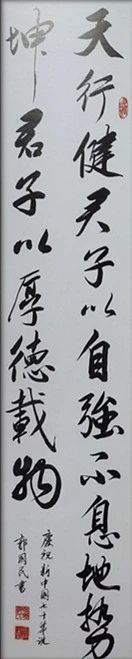 天行健君子以自強不息地势
坤君子以厚德載物
慶祝新中國七十華誕
郭国民書